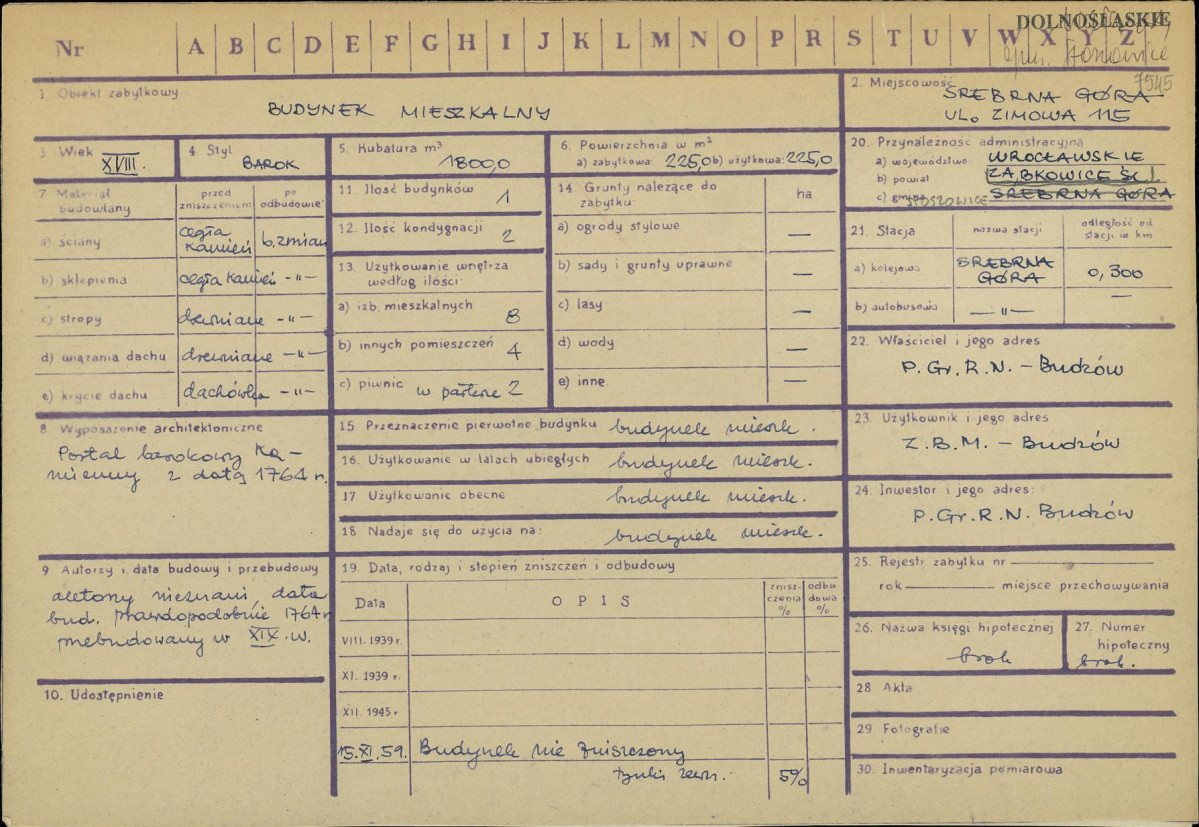 DOLNOŚLĄSKIE
Nr A B C D E F G H I J K L M N O P R S T U V W X Y Z
7545
1. Obiekt zabytkowy
BUDYNEK MIESZKALNY
2. Miejscowość
SREBRNA GÓRA
UL. ZIMOWA 115
3. Wiek
XVIII.
4. Styl
BAROK
5. Kubatura m³
1800,0
6. Powierzchnia w m²
a) zabytkowa: 225,0 b) użytkowa: 225,0
20. Przynależność administracyjna
a) województwo WROCŁAWSKIE
b) powiat ZĄBKOWICE ŚL.
c) gmina STOSZOWICE SREBRNA GÓRA
7. Materiał budowlany
przed zniszczeniem
po odbudowie
a) ściany cegła kamień b. zmian
b) sklepienia cegła kamień —„—
c) stropy drewniane —„—
d) wiązania dachu drewniane —„—
e) krycie dachu dachówka —„—
11. Ilość budynków 1
12. Ilość kondygnacji 2
13. Użytkowanie wnętrza
według ilości:
a) izb mieszkalnych 8
b) innych pomieszczeń 4
c) piwnic w parterze 2
14. Grunty należące do
zabytku
ha
a) ogrody stylowe —
b) sady i grunty uprawne —
c) lasy —
d) wody —
e) inne —
21. Stacja
nazwa stacji
odległość od
stacji w km
a) kolejowa SREBRNA GÓRA 0,300
b) autobusowa —„— —
22. Właściciel i jego adres
P.Gr.R.N. – Budzów
23. Użytkownik i jego adres
Z.B.M. – Budzów
24. Inwestor i jego adres:
P.Gr.R.N. Budzów
8. Wyposażenie architektoniczne
Portal barokowy ka-
mienny z datą 1764 r.
15. Przeznaczenie pierwotne budynku budynek mieszk.
16. Użytkowanie w latach ubiegłych budynek mieszk.
17 Użytkowanie obecne budynek mieszk.
18. Nadaje się do użycia na: budynek mieszk.
9 Autorzy i data budowy i przebudowy
nieznani, data
bud. prawdopodobnie 1764 r
przebudowany w XIX.w.
10. Udostępnienie
19. Data, rodzaj i stopień zniszczeń i odbudowy
Data
OPIS
znisz-
czenia
%
odbu
dowa
%
VIII. 1939 r.
XI. 1939 r.
XII. 1945 r
15.XI.59. Budynek nie zniszczony
5%
25. Rejestr zabytku nr
rok miejsce przechowywania
26. Nazwa księgi hipotecznej
brak
27. Numer
hipoteczny
brak.
28 Akta
29. Fotografie
30. Inwentaryzacja pomiarowa